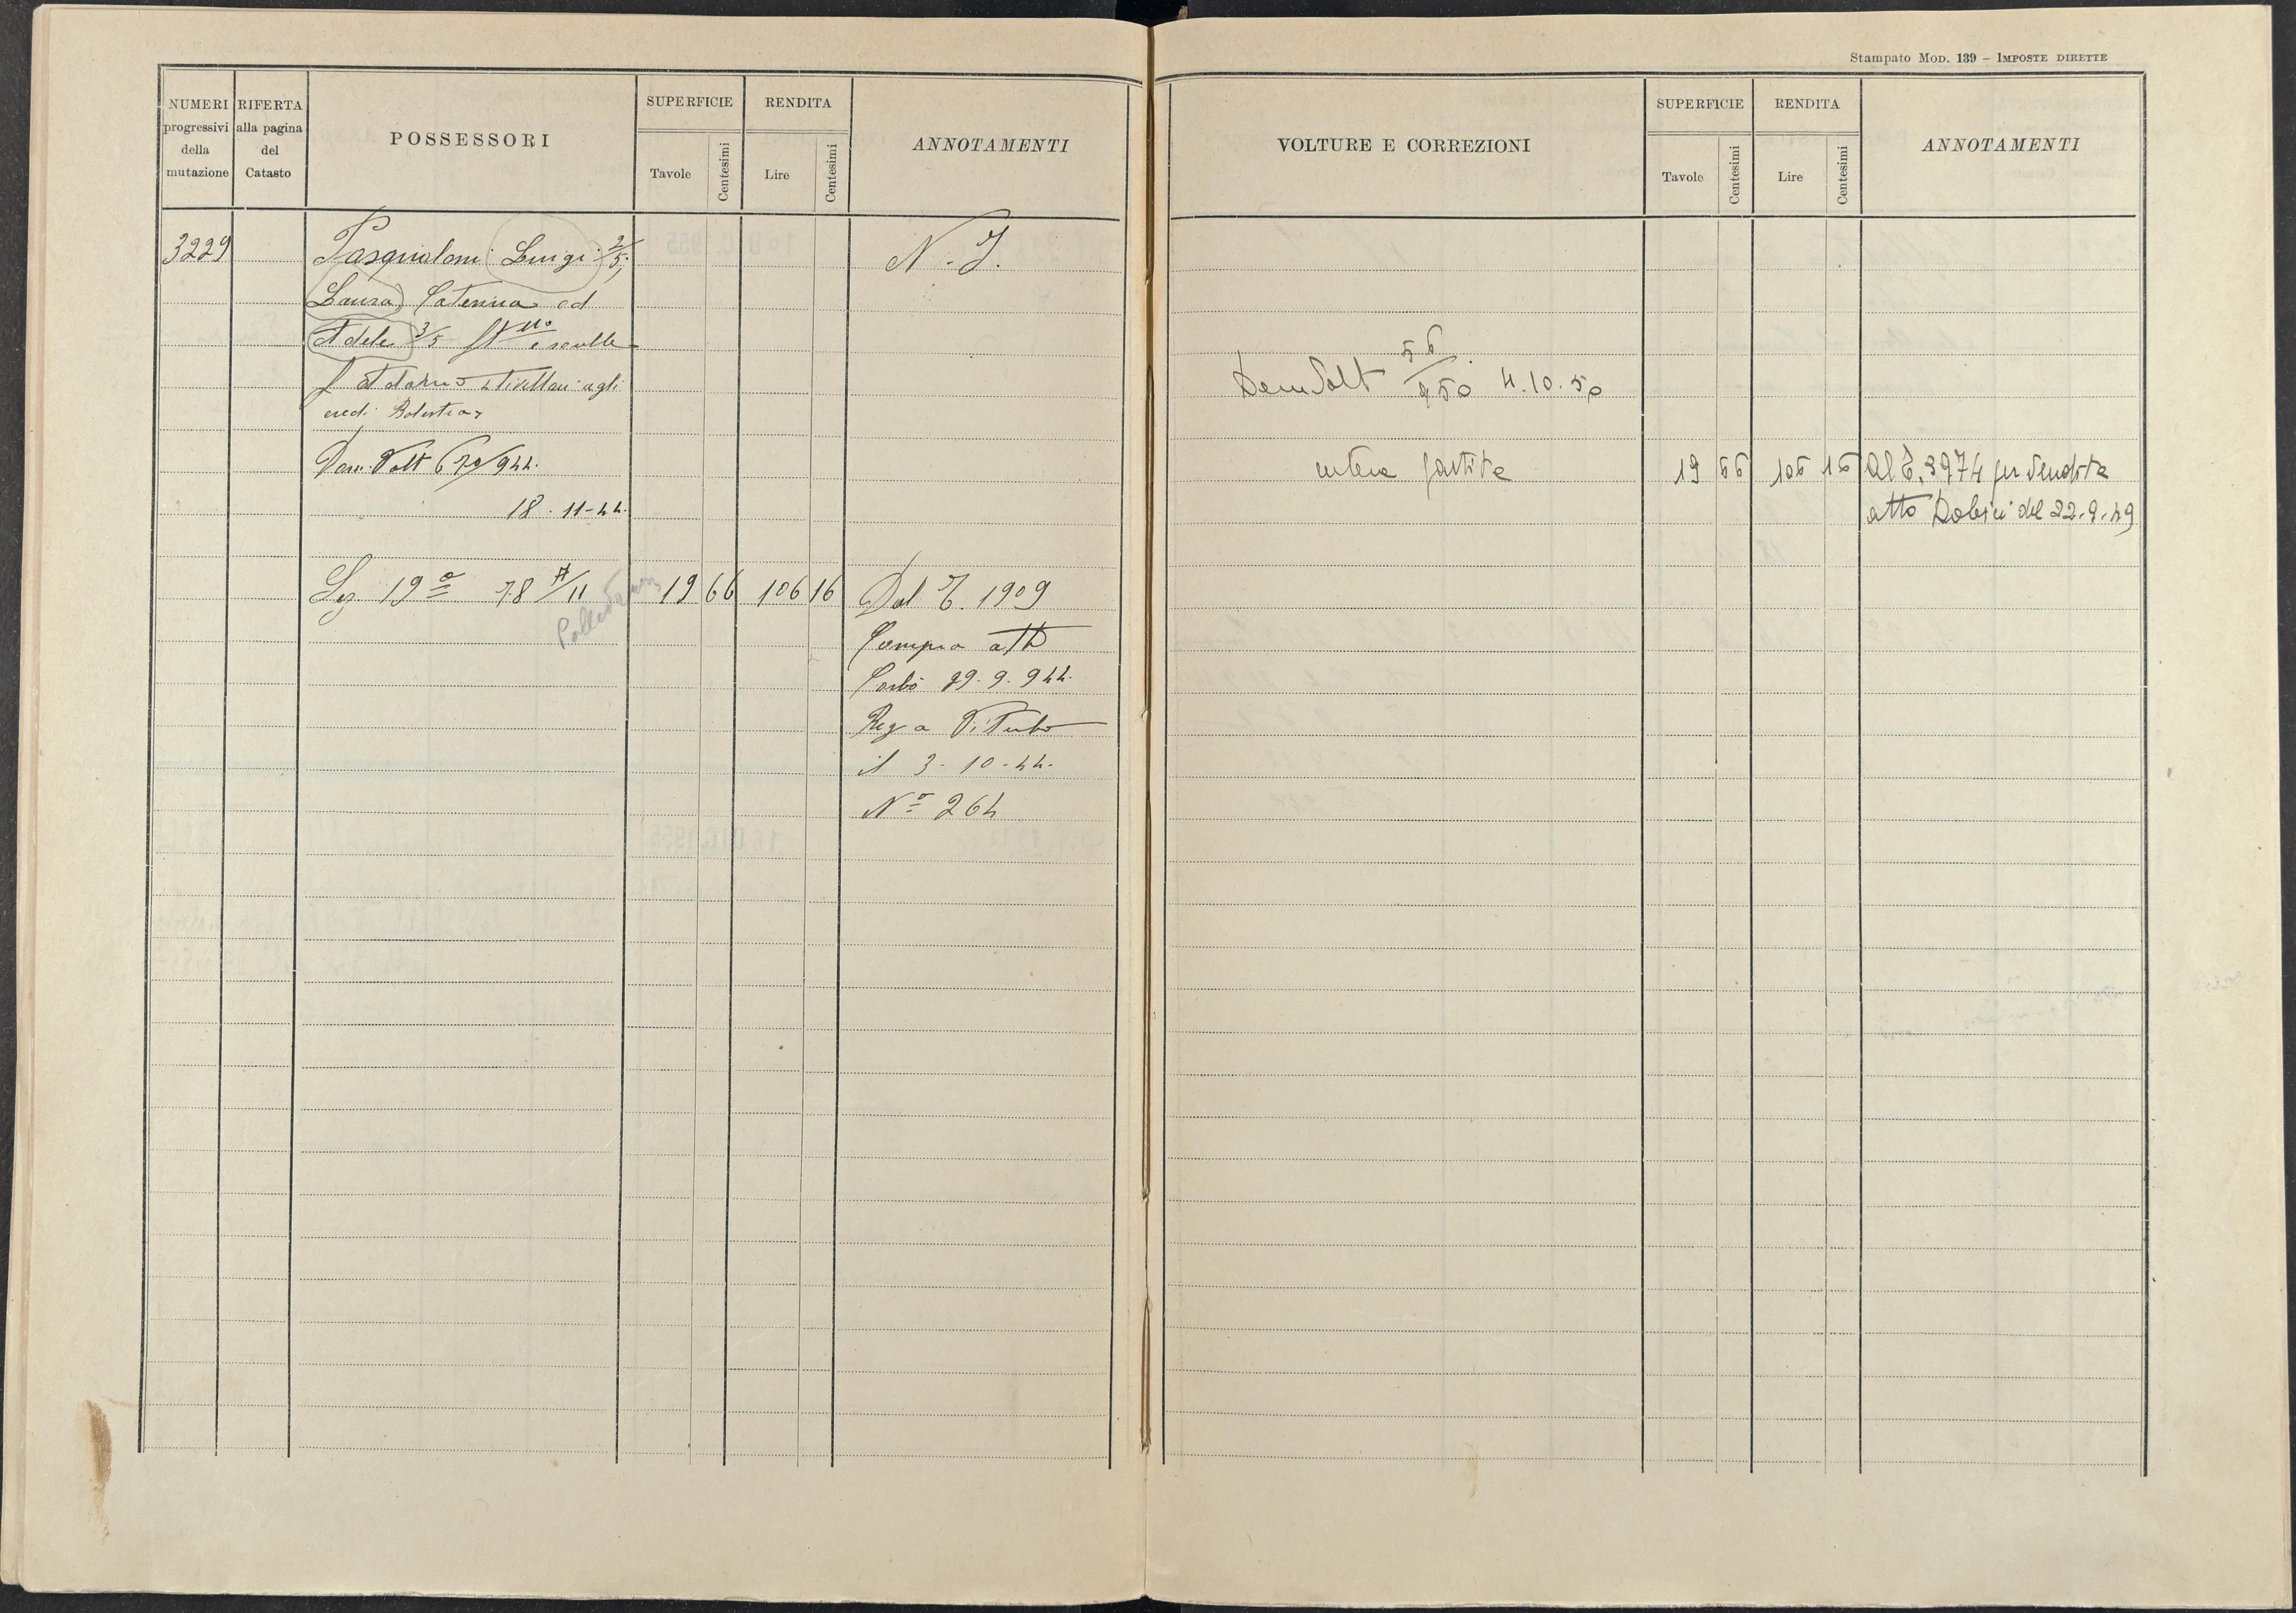 Stampato Mod. 139 – Imposte dirette
NUMERI progressivi della mutazione
RIFERTA alla pagina del Catasto
POSSESSORI
SUPERFICIE
Tavole
Centesimi
RENDITA
Lire
Centesimi
ANNOTAMENTI
3229
Pasquoloni Luigi 2/5,
Laura Caterina ed
Adele 3/5 e sorelle
f Adamo livellari agli
eredi
Dom. Volt 670/944.
18-11-44.
Sez. 19ª 78 A/11
19 66 106 16
N. I.
Dal T. 1909
Compra atto
29.9.944.
Reg a Viterbo
il 3-10-44.
Nº 264
VOLTURE E CORREZIONI
SUPERFICIE
Tavole
Centesimi
RENDITA
Lire
Centesimi
ANNOTAMENTI
Dom Volt 56/950 4.10.50
intera partita
19 66 106 16
Al T. 3974 per vendita
atto del 22.9.49